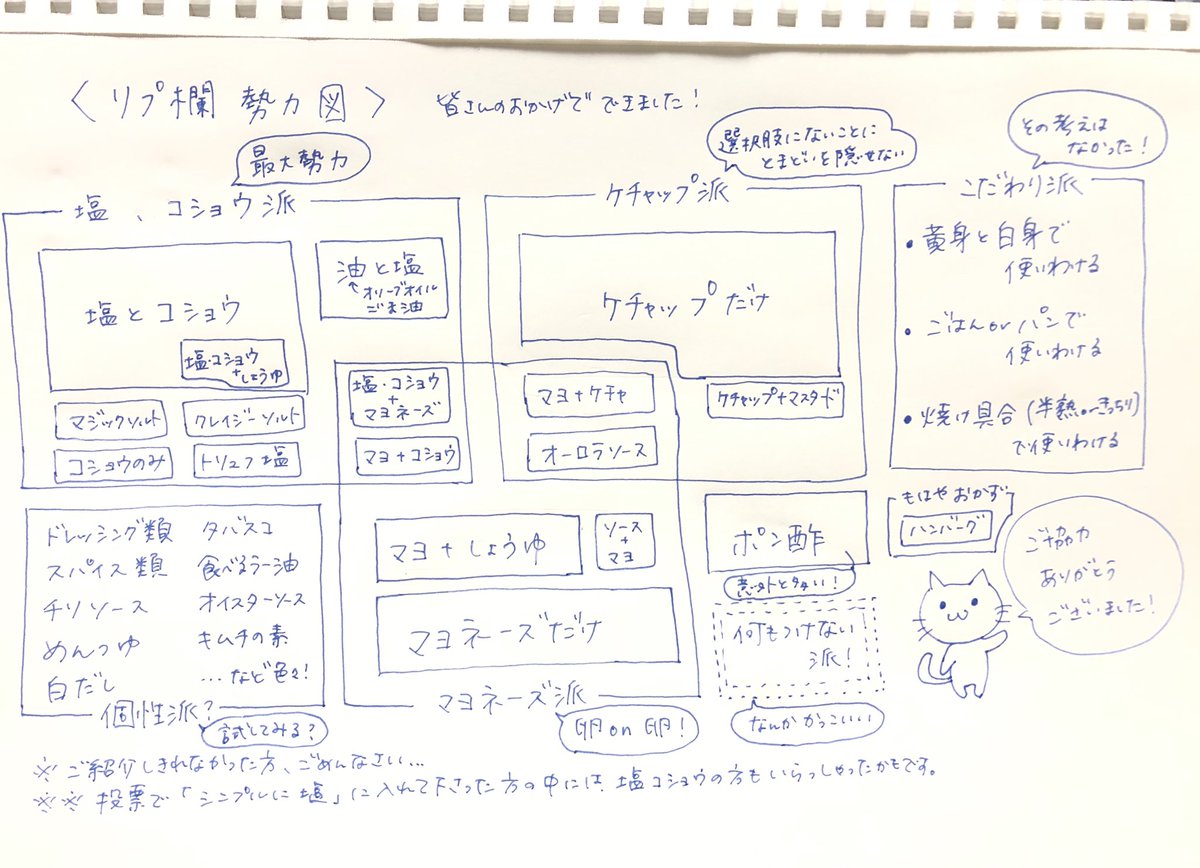 〈リプ欄 勢力図〉
皆さんのおかげで できました!
最大勢力
塩、コショウ派
塩とコショウ
塩・コショウ
+しょうゆ
油と塩
オリーブオイル
ごま油
マジックソルト
クレイジーソルト
コショウのみ
トリュフ塩
塩・コショウ
+
マヨネーズ
マヨ+コショウ
選択肢にないことに
とまどいを隠せない
ケチャップ派
ケチャップだけ
マヨ+ケチャ
ケチャップ+マスタード
オーロラソース
その考えは
なかった!
こだわり派
・黄身と白身で
使いわける
・ごはんorパンで
使いわける
・焼け具合(半熟 きっちり)
で使いわける
ドレッシング類
スパイス類
チリソース
めんつゆ
白だし
タバスコ
食べるラー油
オイスターソース
キムチの素
…など色々!
個性派?
試してみる?
マヨ+しょうゆ
ソース
+
マヨ
マヨネーズだけ
マヨネーズ派
卵on卵!
ポン酢
意外と多い!
何もつけない
派!
なんかかっこいい
もはやおかず
ハンバーグ
ご協力
ありがとう
ございました!
※ご紹介しきれなかった方、ごめんなさい…
※※投票で「シンプルに塩」に入れて下さった方の中には、塩コショウの方もいらっしゃったかもです。